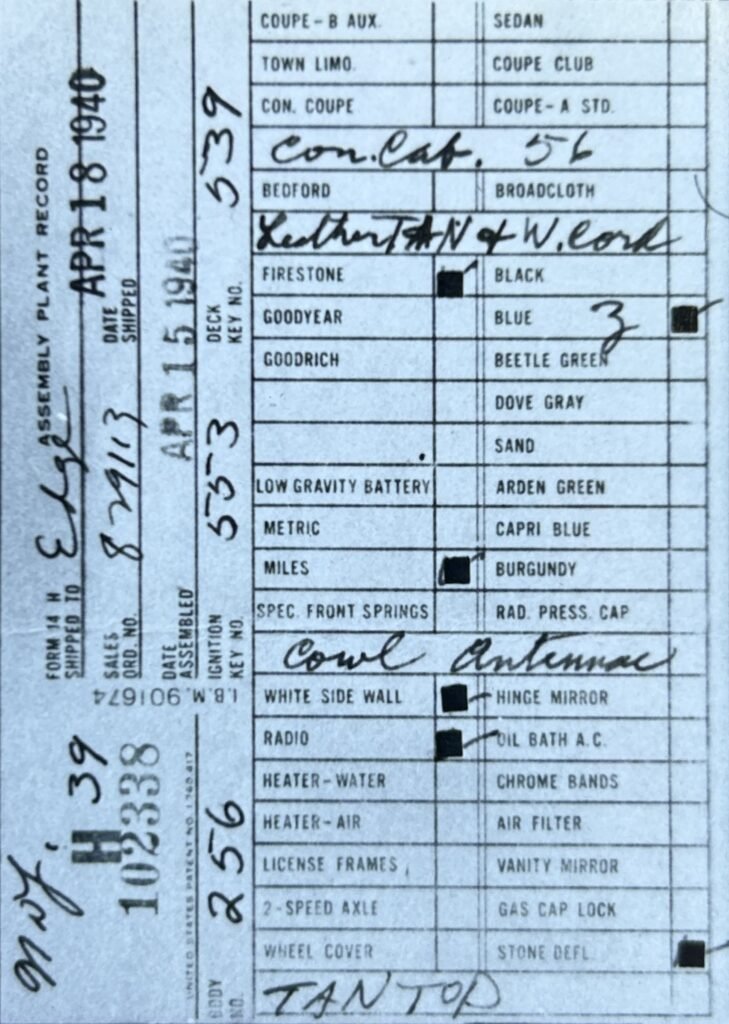 FORM 14 H ASSEMBLY PLANT RECORD
SHIPPED TO Edge APR 18 1940
SALES ORD. NO. 829113 DATE SHIPPED
DATE ASSEMBLED APR 15 1940
IGNITION KEY NO. 553 DECK KEY NO. 539
I.B.M. 901674
H 39
102338
UNITED STATES PATENT NO. 1,772,417
BODY NO. 256
COUPE-B AUX. SEDAN
TOWN LIMO. COUPE CLUB
CON. COUPE COUPE-A STD.
Con. Cab. 56
BEDFORD BROADCLOTH
Leather TAN & W. Cord
FIRESTONE BLACK
GOODYEAR BLUE 3
GOODRICH BEETLE GREEN
DOVE GRAY
SAND
LOW GRAVITY BATTERY ARDEN GREEN
METRIC CAPRI BLUE
MILES BURGUNDY
SPEC. FRONT SPRINGS RAD. PRESS. CAP
Cowl Antennae
WHITE SIDE WALL HINGE MIRROR
RADIO OIL BATH A.C.
HEATER-WATER CHROME BANDS
HEATER-AIR AIR FILTER
LICENSE FRAMES VANITY MIRROR
2-SPEED AXLE GAS CAP LOCK
WHEEL COVER STONE DEFL.
TAN TOP